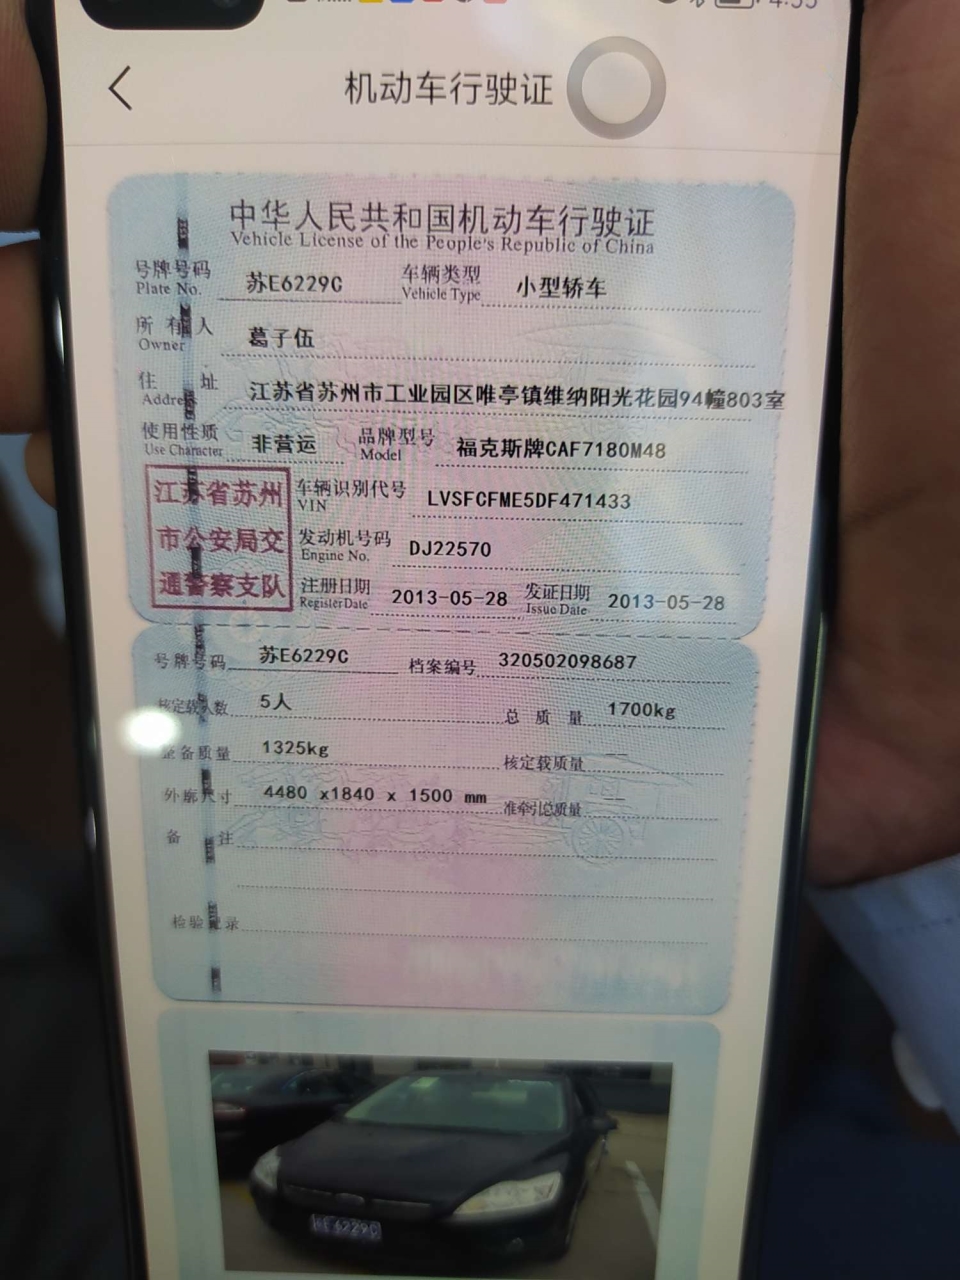 机动车行驶证
中华人民共和国机动车行驶证
Vehicle License of the People's Republic of China
号牌号码 苏E6229C 车辆类型 小型轿车
Plate No. Vehicle Type
所有人 葛子伍
Owner
住址 江苏省苏州市工业园区唯亭镇维纳阳光花园94幢803室
Address
使用性质 非营运 品牌型号 福克斯牌CAF7180M48
Use Character Model
江苏省苏州
市公安局交
通警察支队
车辆识别代号 LVSFCFME5DF471433
VIN
发动机号码 DJ22570
Engine No.
注册日期 2013-05-28 发证日期 2013-05-28
Register Date Issue Date
号牌号码 苏E6229C 档案编号 320502098687
核定载人数 5人 总质量 1700kg
整备质量 1325kg 核定载质量 --
外廓尺寸 4480 x1840 x 1500 mm 准牵引总质量 --
备注
检验记录
苏E6229C